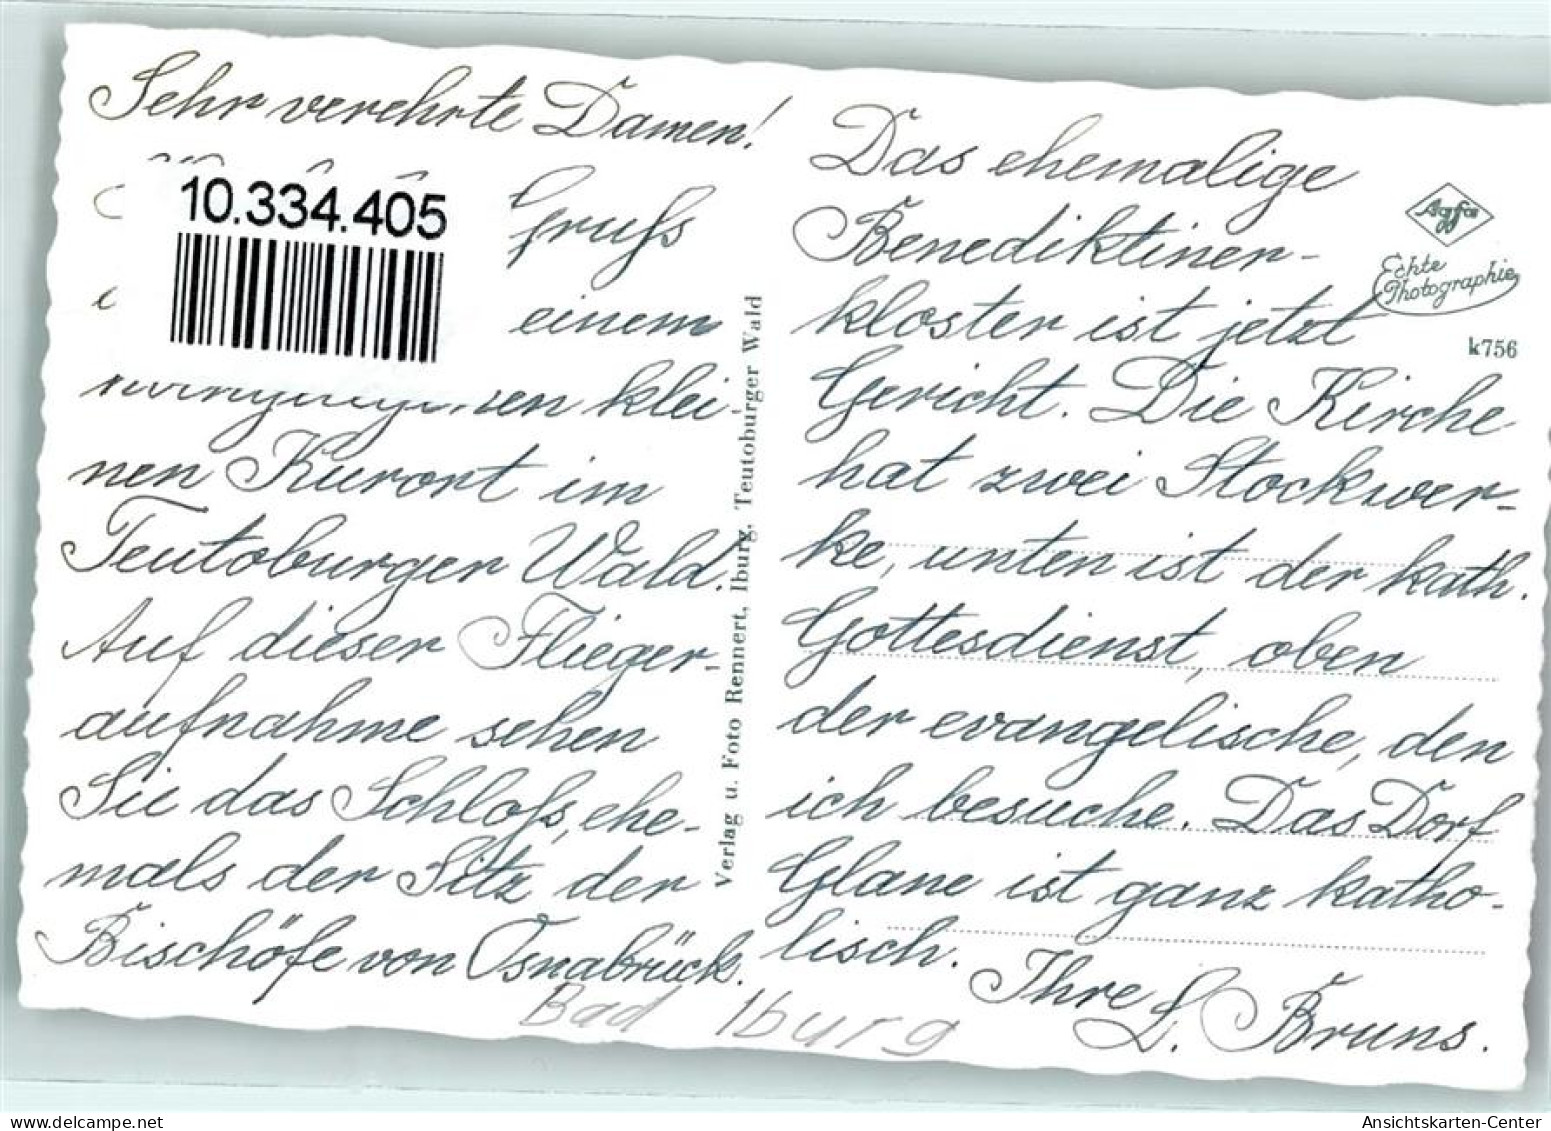 Sehr verehrte Damen!
Gruss
einem
klei
nen Kurort im
Teutoburger Wald.
Auf dieser Flieger
aufnahme sehen
Sie das Schloss, ehe-
mals der Sitz der
Bischöfe von Osnabrück.
10.334.405
Verlag u. Foto Rennert, Iburg, Teutoburger Wald
Das ehemalige
Benediktiner-
kloster ist jetzt
Gericht. Die Kirche
hat zwei Stockwer-
ke, unten ist der kath.
Gottesdienst, oben
der evangelische, den
ich besuche. Das Dorf
Glane ist ganz katho-
lisch.
Ihre
L. Bruns.
Agfa
Echte
Photographie
k756
Bad Iburg
Ansichtskarten-Center